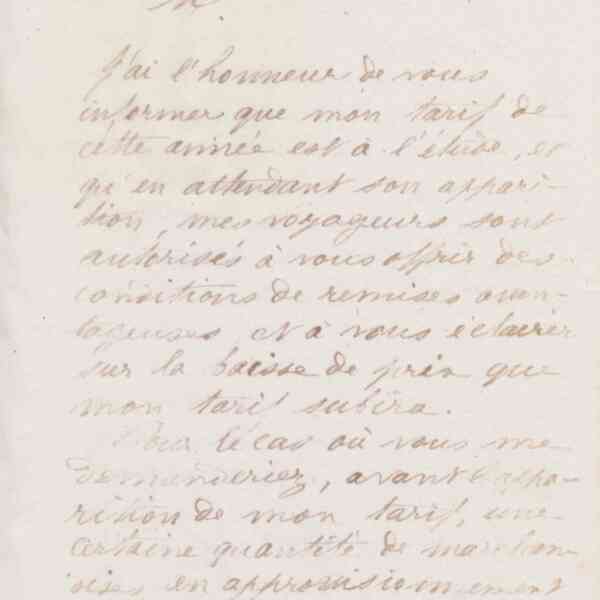 M
J'ai l'honneur de vous
informer que mon tarif de
cette année est à l'étude, et
qu'en attendant son appari-
tion, mes voyageurs sont
autorisés à vous offrir des
conditions de remises avan-
tageuses et à vous éclairer
sur la baisse de prix que
mon tarif subira.
Pour le cas où vous me
demanderiez, avant l'appa-
rition de mon tarif, une
certaine quantité de marchan-
dises en approvisionnement